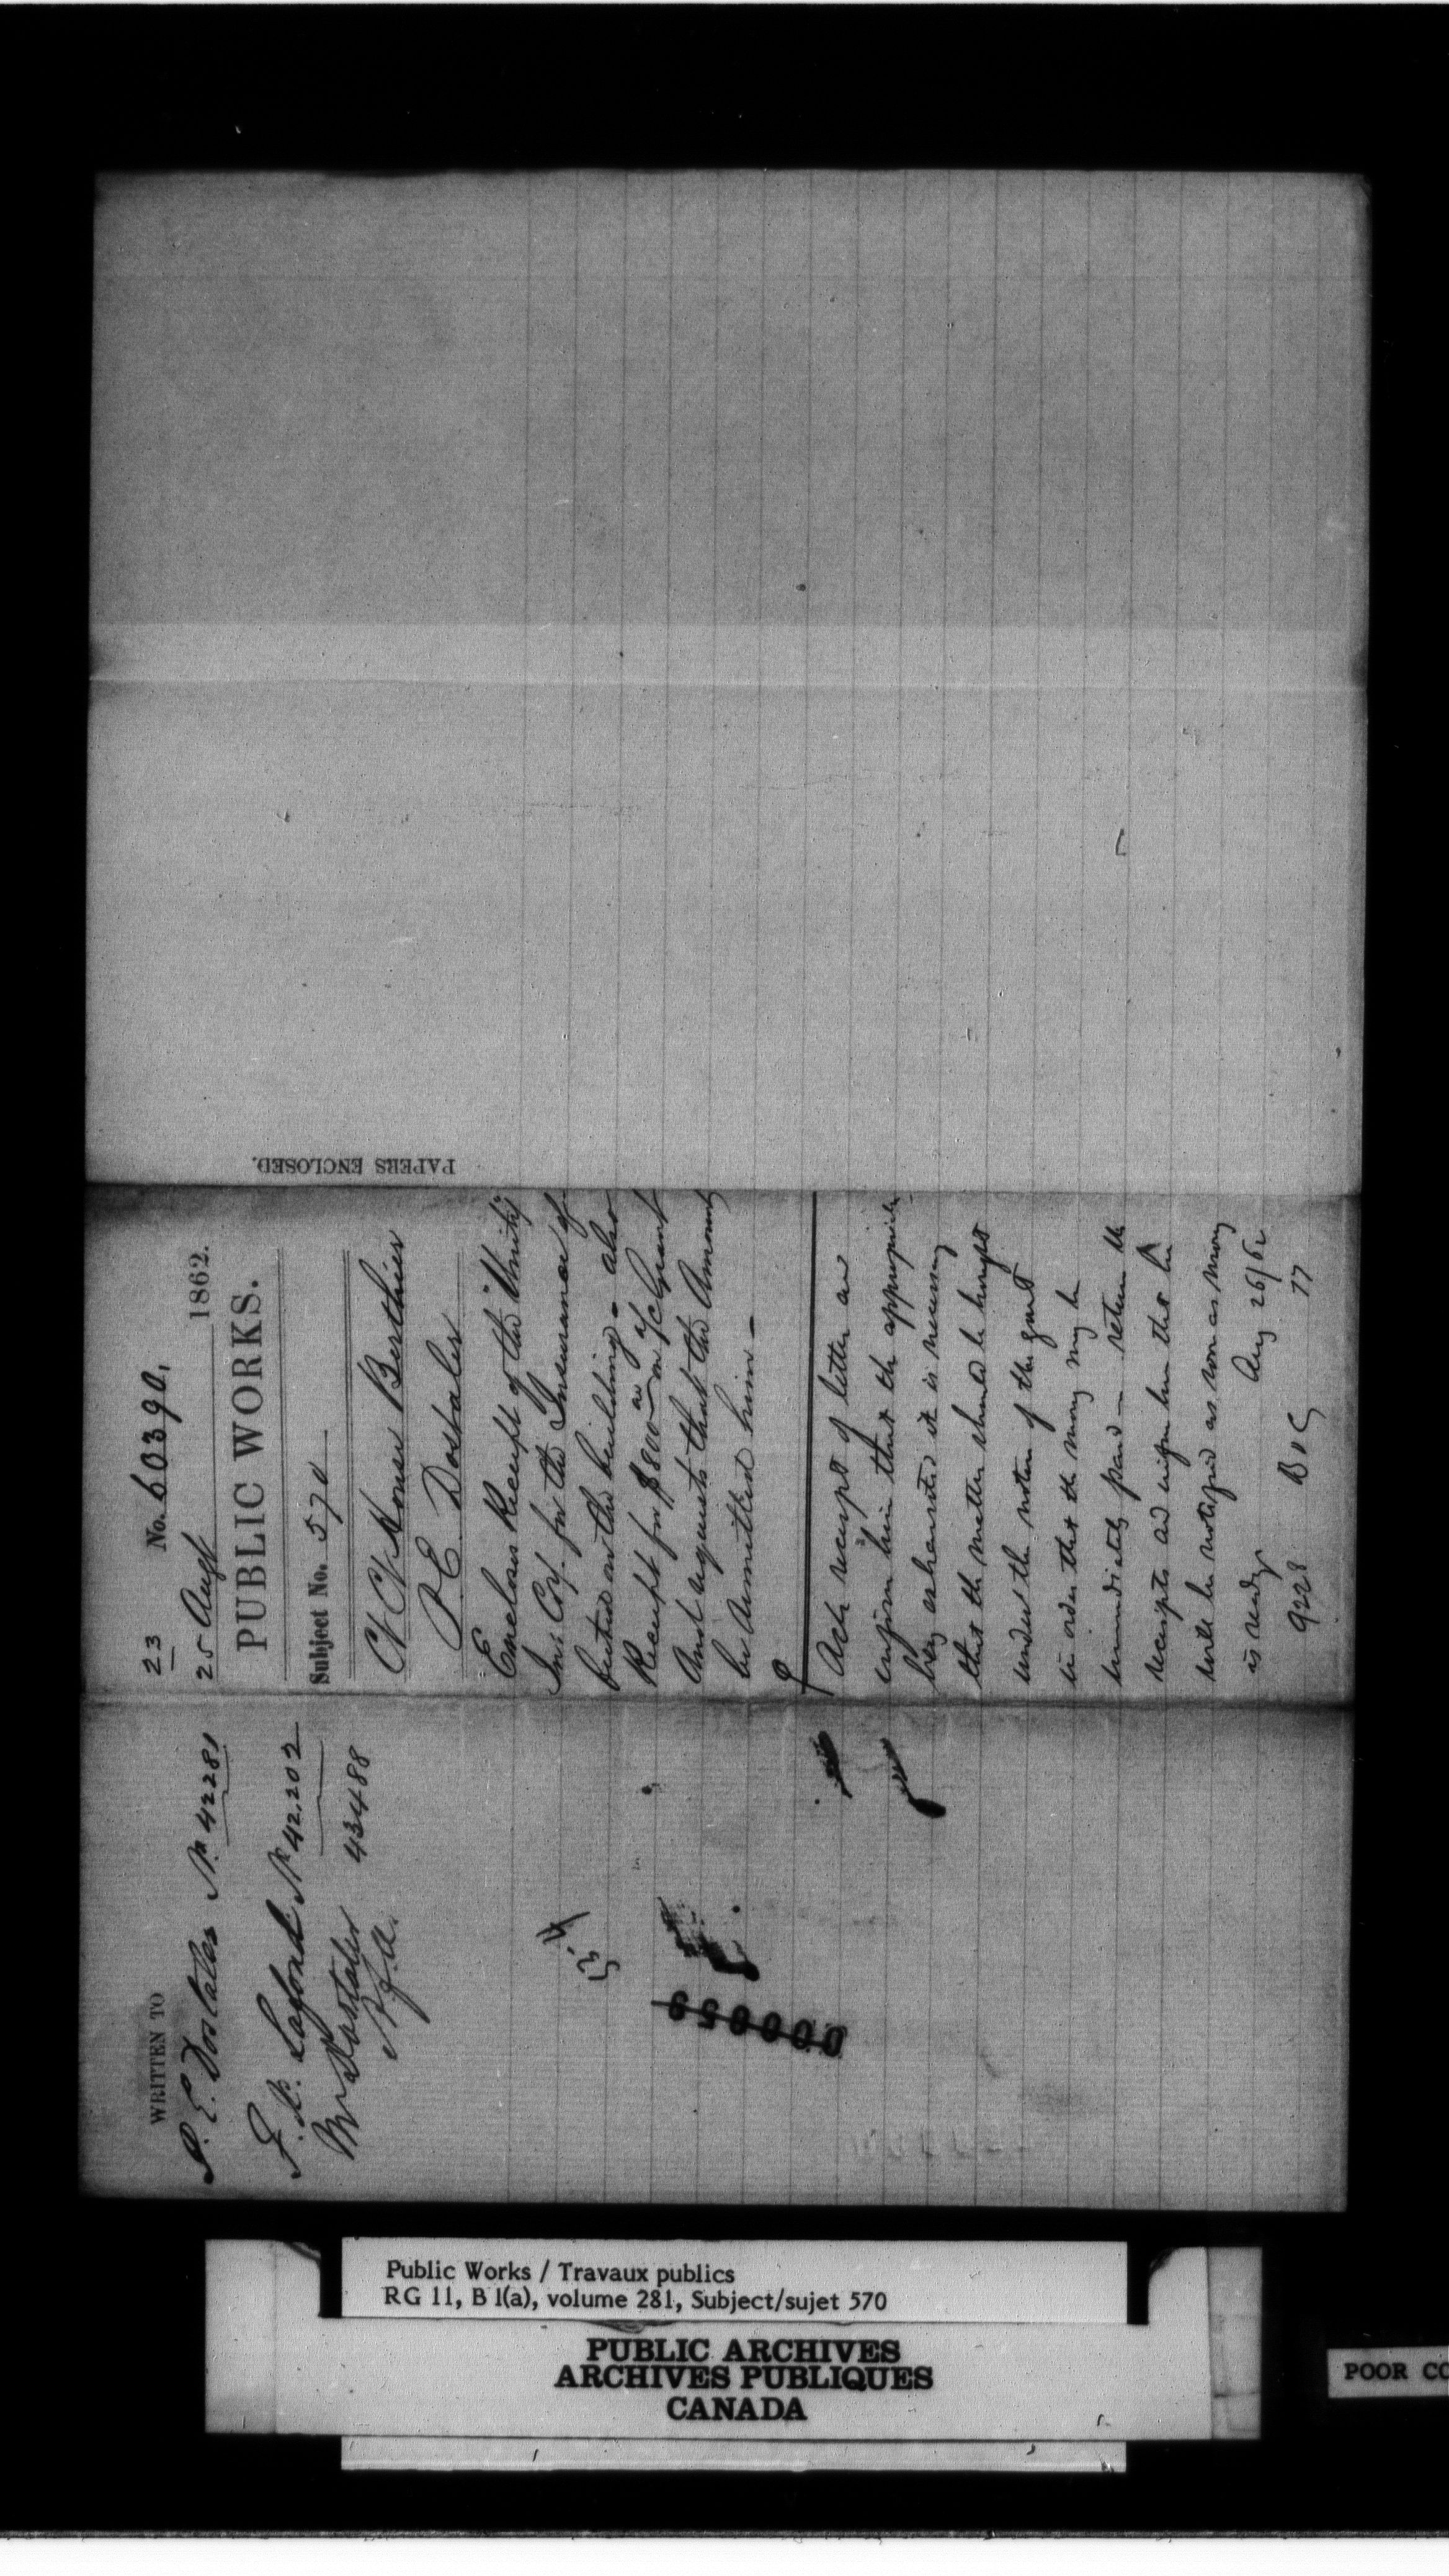 WRITTEN TO
P. E. Dostaler No. 42281
J. N. Lafond No. 42,202
Mr Dostaler 43488
23 No. 60390,
25 Augt 1862.
PUBLIC WORKS.
Subject No. 570
Ct House Berthier
P. E. Dostaler
Encloses Receipt of the "Unity"
Ins. Coy. for the Insurance of
Receipt for $800 on % of Grant
And requests that the Amount
be remitted him —
Ack receipt of letter and
inform him that the appropriation
being exhausted it is necessary
that the matter should be brought
under the notice of the govt
in order that the money may be
immediately paid — return the
receipts and inform him that he
will be notified as soon as money
is ready Aug 26/62
9228 77
PAPERS ENCLOSED.
000059
Public Works / Travaux publics
RG 11, B 1(a), volume 281, Subject/sujet 570
PUBLIC ARCHIVES
ARCHIVES PUBLIQUES
CANADA
POOR CO